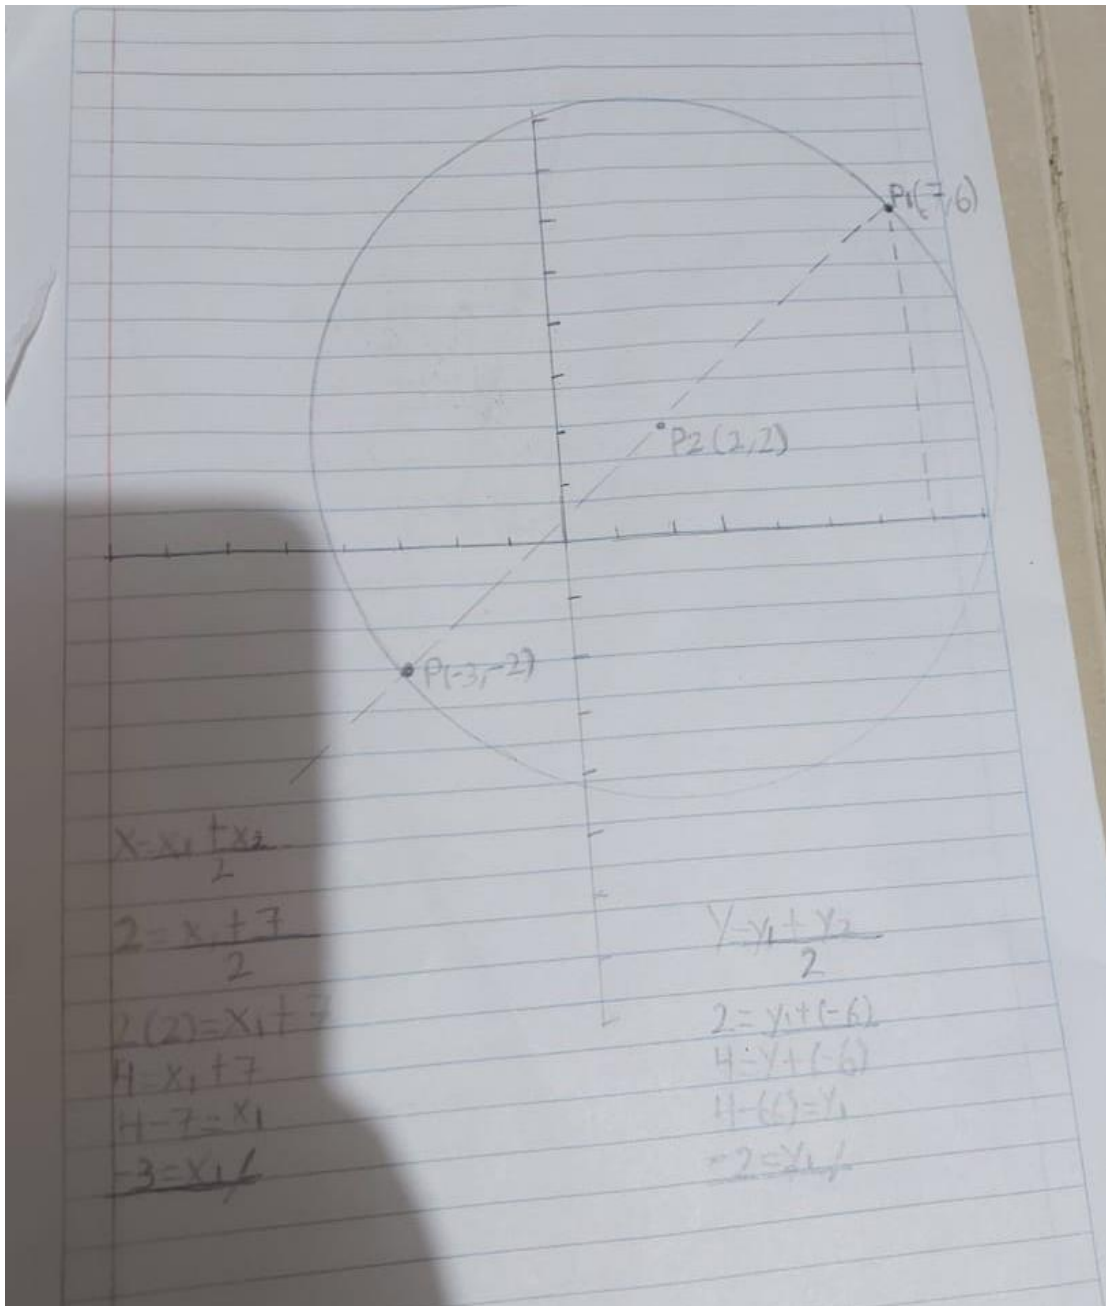 P1(7,6)
P2(2,2)
P(-3,-2)
X=x₁+x₂
2
2=x₁+7
2
2(2)=x₁+7
4=x₁+7
4-7=x₁
-3=x₁/
Y=y₁+y₂
2
2=y₁+(-6)
4=y+(-6)
=y₁
-2=y₁/